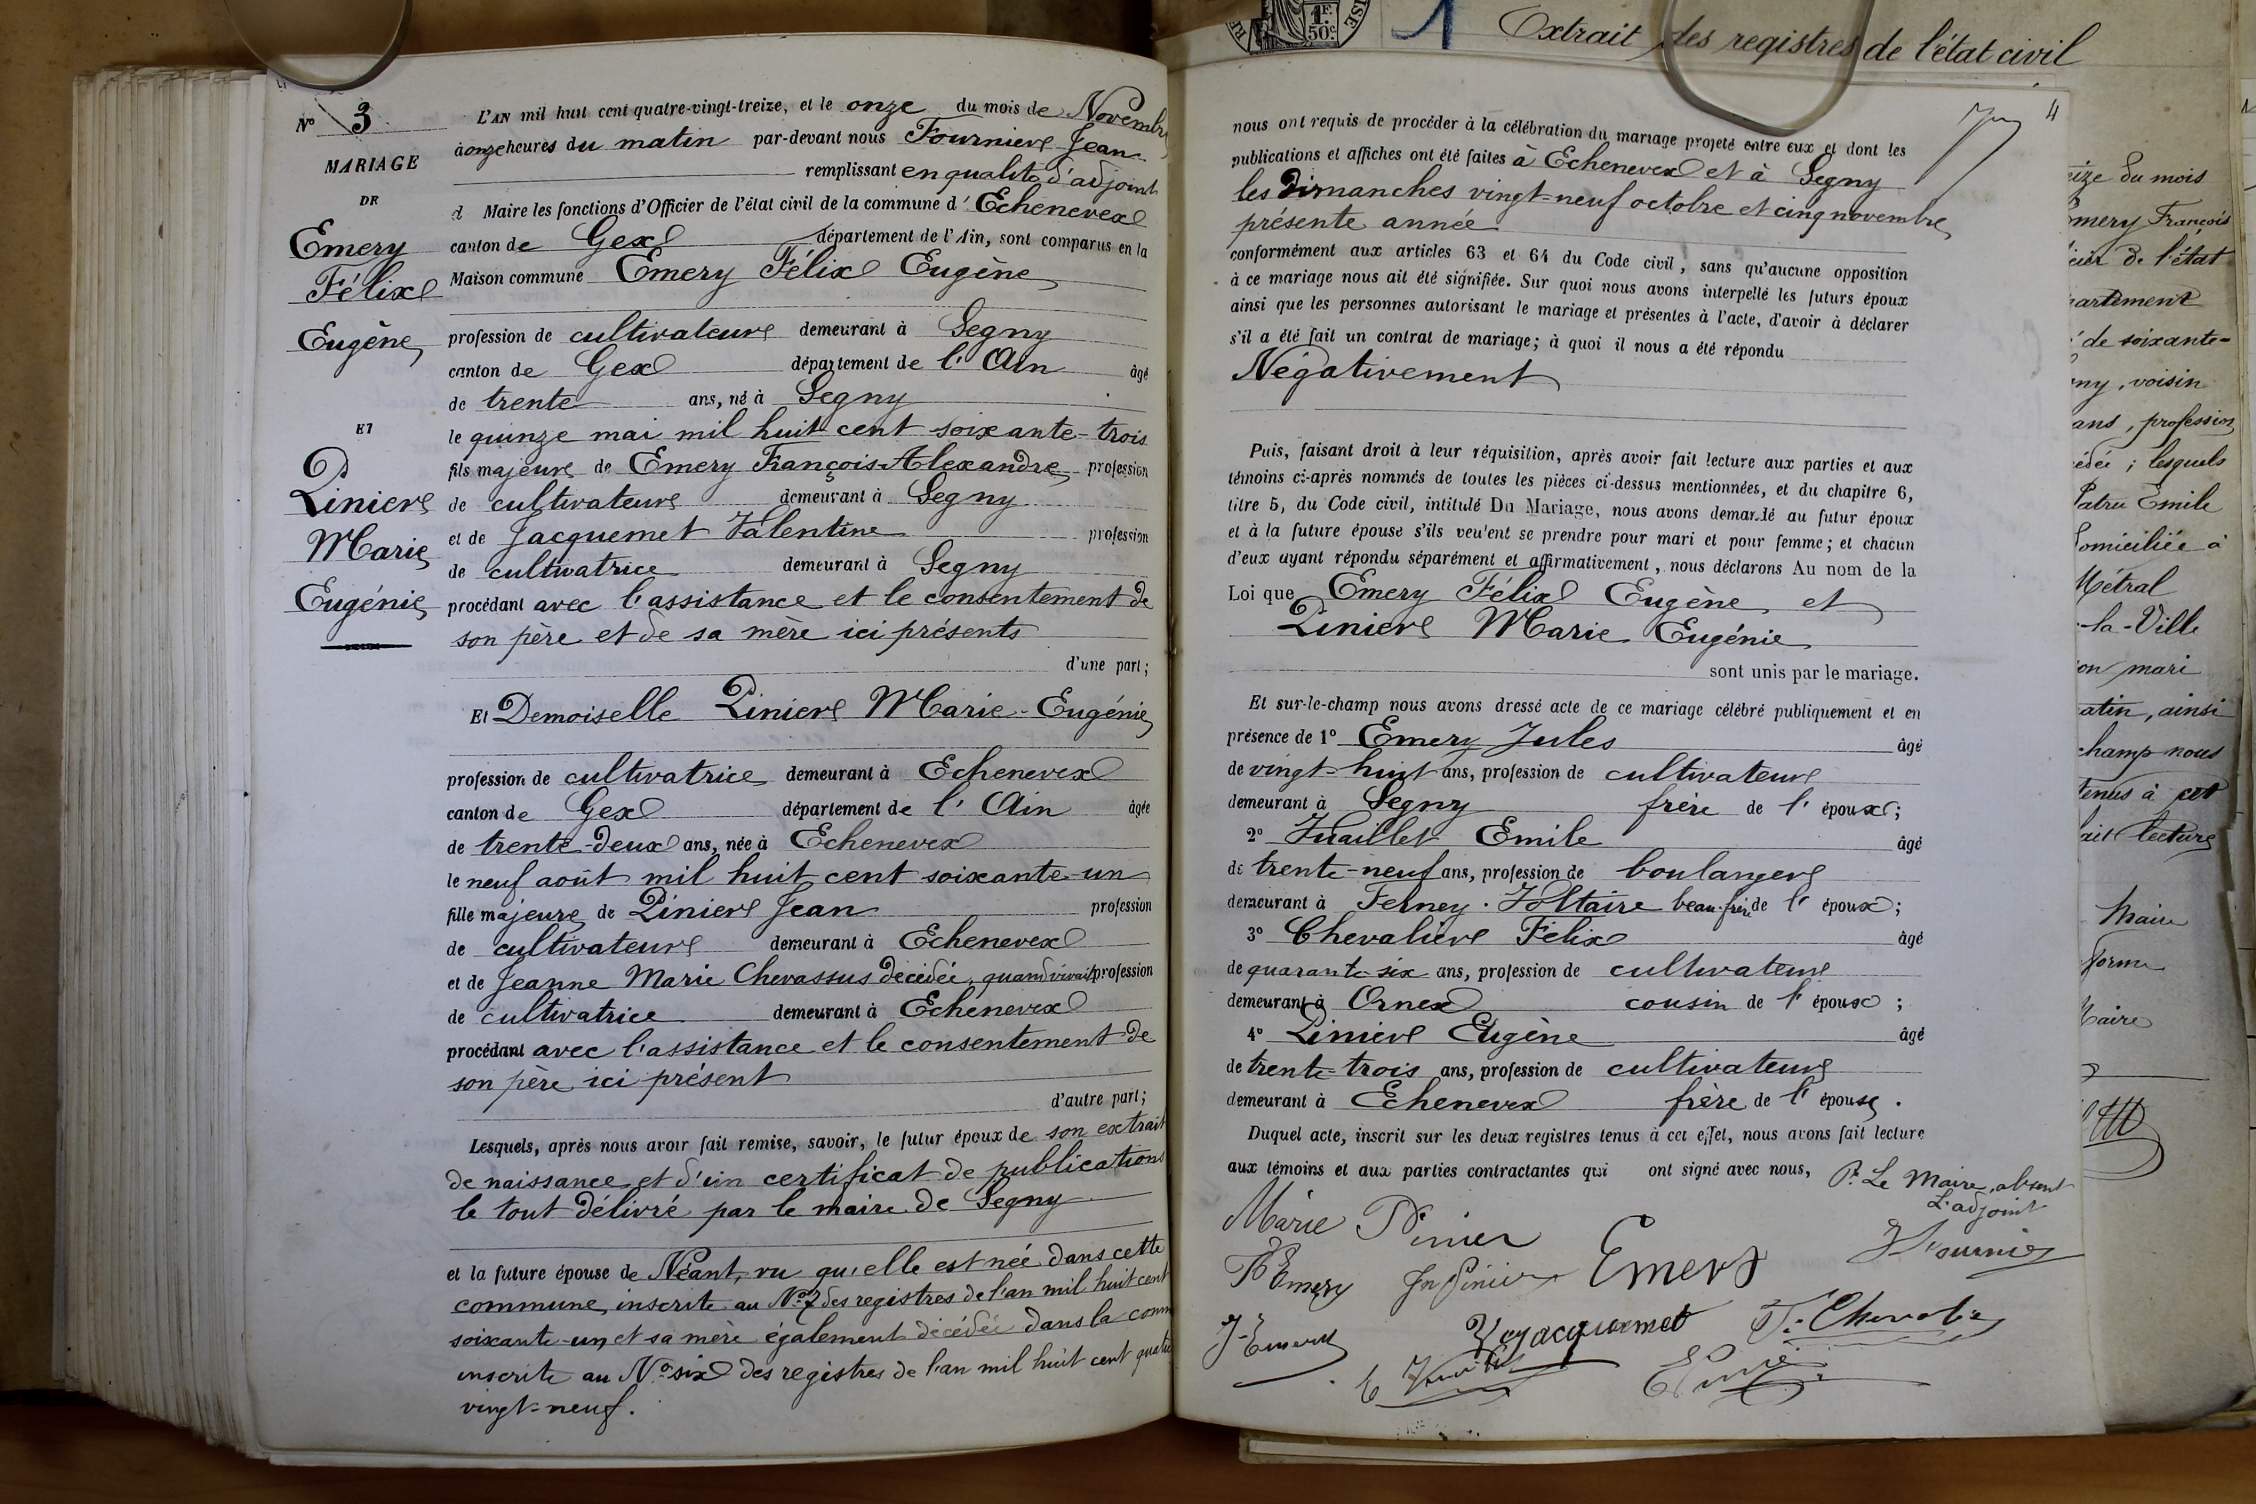 Nº 3
MARIAGE
DE
Emery
Félix
Eugène
ET
Pinier
Marie
Eugénie
L'AN mil huit cent quatre-vingt-treize, et le onze du mois de Novembre
à onze heures du matin par-devant nous Fournier Jean
remplissant en qualité d'adjoint
d Maire les fonctions d'Officier de l'état civil de la commune d' Echenevex
canton de Gex département de l'Ain, sont comparus en la
Maison commune Emery Félix Eugène
profession de cultivateur demeurant à Segny
canton de Gex département de l'Ain âgé
de trente ans, né à Segny
le quinze mai mil huit cent soixante-trois
fils majeur de Emery François-Alexandre profession
de cultivateur demeurant à Segny
et de Jacquemet Valentine profession
de cultivatrice demeurant à Segny
procédant avec l'assistance et le consentement de
son père et de sa mère ici présents
d'une part;
Et Demoiselle Pinier Marie-Eugénie
profession de cultivatrice demeurant à Echenevex
canton de Gex département de l'Ain âgée
de trente-deux ans, née à Echenevex
le neuf août mil huit cent soixante-un
fille majeure de Pinier Jean profession
de cultivateur demeurant à Echenevex
et de Jeanne Marie Chevassus décédée, quand vivait profession
de cultivatrice demeurant à Echenevex
procédant avec l'assistance et le consentement de
son père ici présent
d'autre part;
Lesquels, après nous avoir fait remise, savoir, le futur époux de son extrait
de naissance et d'un certificat de publications
le tout délivré par le maire de Segny
et la future épouse de Néant, vu qu'elle est née dans cette
commune, inscrite au Nº 7 des registres de l'an mil huit cent
soixante-un, et sa mère également décédée dans la comm
inscrite au Nº six des registres de l'an mil huit cent quatre
vingt-neuf.
1F.
50c.
1 Extrait des registres de l'état civil
4
nous ont requis de procéder à la célébration du mariage projeté entre eux et dont les
publications et affiches ont été faites à Echenevex et à Segny
les Dimanches vingt-neuf octobre et cinq novembre
présente année
conformément aux articles 63 et 64 du Code civil, sans qu'aucune opposition
à ce mariage nous ait été signifiée. Sur quoi nous avons interpellé les futurs époux
ainsi que les personnes autorisant le mariage et présentes à l'acte, d'avoir à déclarer
s'il a été fait un contrat de mariage; à quoi il nous a été répondu
Négativement
Puis, faisant droit à leur réquisition, après avoir fait lecture aux parties et aux
témoins ci-après nommés de toutes les pièces ci-dessus mentionnées, et du chapitre 6,
titre 5, du Code civil, intitulé Du Mariage, nous avons demandé au futur époux
et à la future épouse s'ils veulent se prendre pour mari et pour femme; et chacun
d'eux ayant répondu séparément et affirmativement, nous déclarons Au nom de la
Loi que Emery Félix Eugène et
Pinier Marie Eugénie
sont unis par le mariage.
Et sur-le-champ nous avons dressé acte de ce mariage célébré publiquement et en
présence de 1º Emery Jules âgé
de vingt-huit ans, profession de cultivateur
demeurant à Segny frère de l'époux;
2º Vuaillet Emile âgé
de trente-neuf ans, profession de boulanger
demeurant à Ferney-Voltaire beau-frère de l'époux;
3º Chevalier Felix âgé
de quarante-six ans, profession de cultivateur
demeurant à Ornex cousin de l'époux;
4º Pinier Eugène âgé
de trente-trois ans, profession de cultivateur
demeurant à Echenevex frère de l'épouse.
Duquel acte, inscrit sur les deux registres tenus à cet effet, nous avons fait lecture
aux témoins et aux parties contractantes qui ont signé avec nous, Pr. Le Maire, absent
L'adjoint
Marie Pinier Emery J Fournier
F Emery Jn Pinier
J. Emery V Jacquemet F. Chevalier
eize du mois
Emery François
icier de l'état
partement
de soixante-
ny, voisin
ans, profession
édée; lesquels
Patru Emile
Domiciliée à
Métral
-la-Ville
on mari
atin, ainsi
champ nous
tenus à cet
ait lecture
Maire
forme
Maire